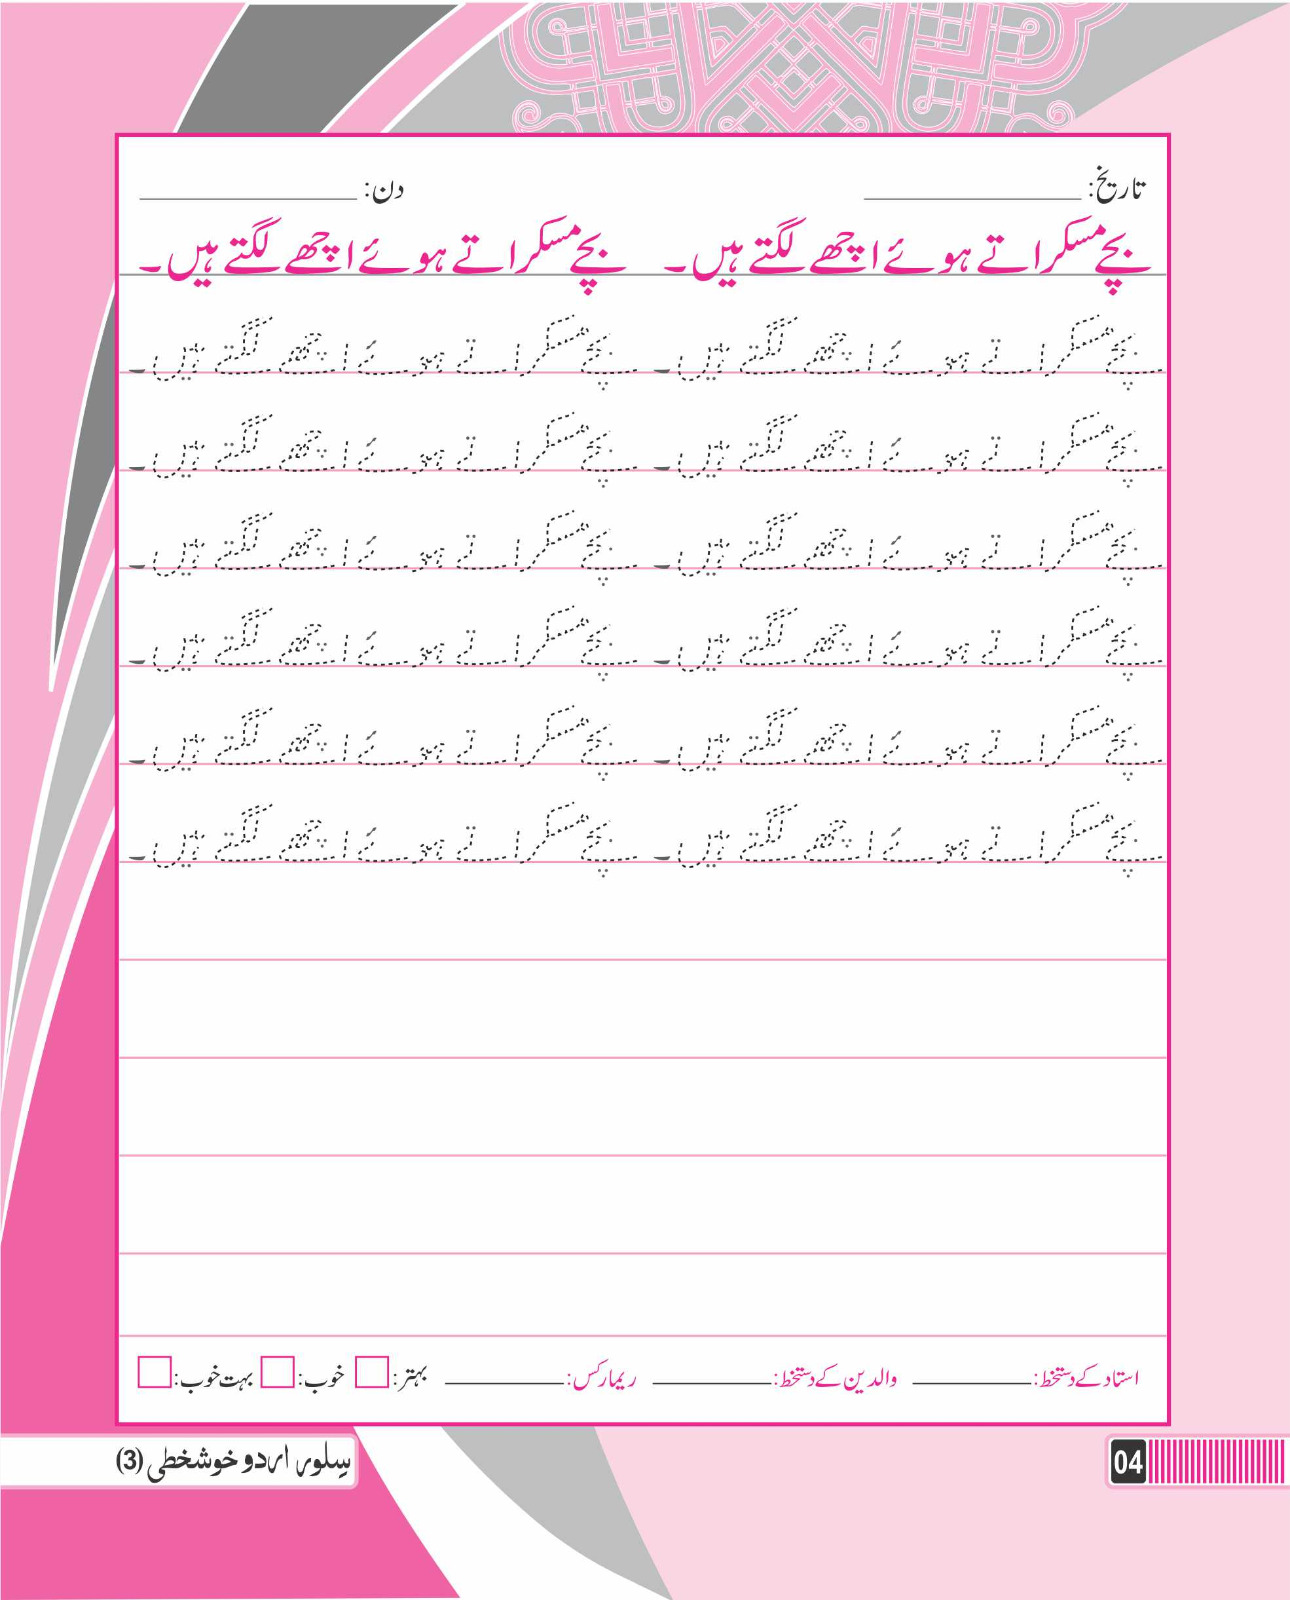 تاریخ: ____________ دن: ____________
بچے مسکراتے ہوئے اچھے لگتے ہیں۔ بچے مسکراتے ہوئے اچھے لگتے ہیں۔
بچے مسکراتے ہوئے اچھے لگتے ہیں۔ بچے مسکراتے ہوئے اچھے لگتے ہیں۔
بچے مسکراتے ہوئے اچھے لگتے ہیں۔ بچے مسکراتے ہوئے اچھے لگتے ہیں۔
بچے مسکراتے ہوئے اچھے لگتے ہیں۔ بچے مسکراتے ہوئے اچھے لگتے ہیں۔
بچے مسکراتے ہوئے اچھے لگتے ہیں۔ بچے مسکراتے ہوئے اچھے لگتے ہیں۔
بچے مسکراتے ہوئے اچھے لگتے ہیں۔ بچے مسکراتے ہوئے اچھے لگتے ہیں۔
بچے مسکراتے ہوئے اچھے لگتے ہیں۔ بچے مسکراتے ہوئے اچھے لگتے ہیں۔
استاد کے دستخط: ________ والدین کے دستخط: ________ ریمارکس: ________ بہتر: خوب: بہت خوب:
04 سِلور اردو خوشخطی (3)